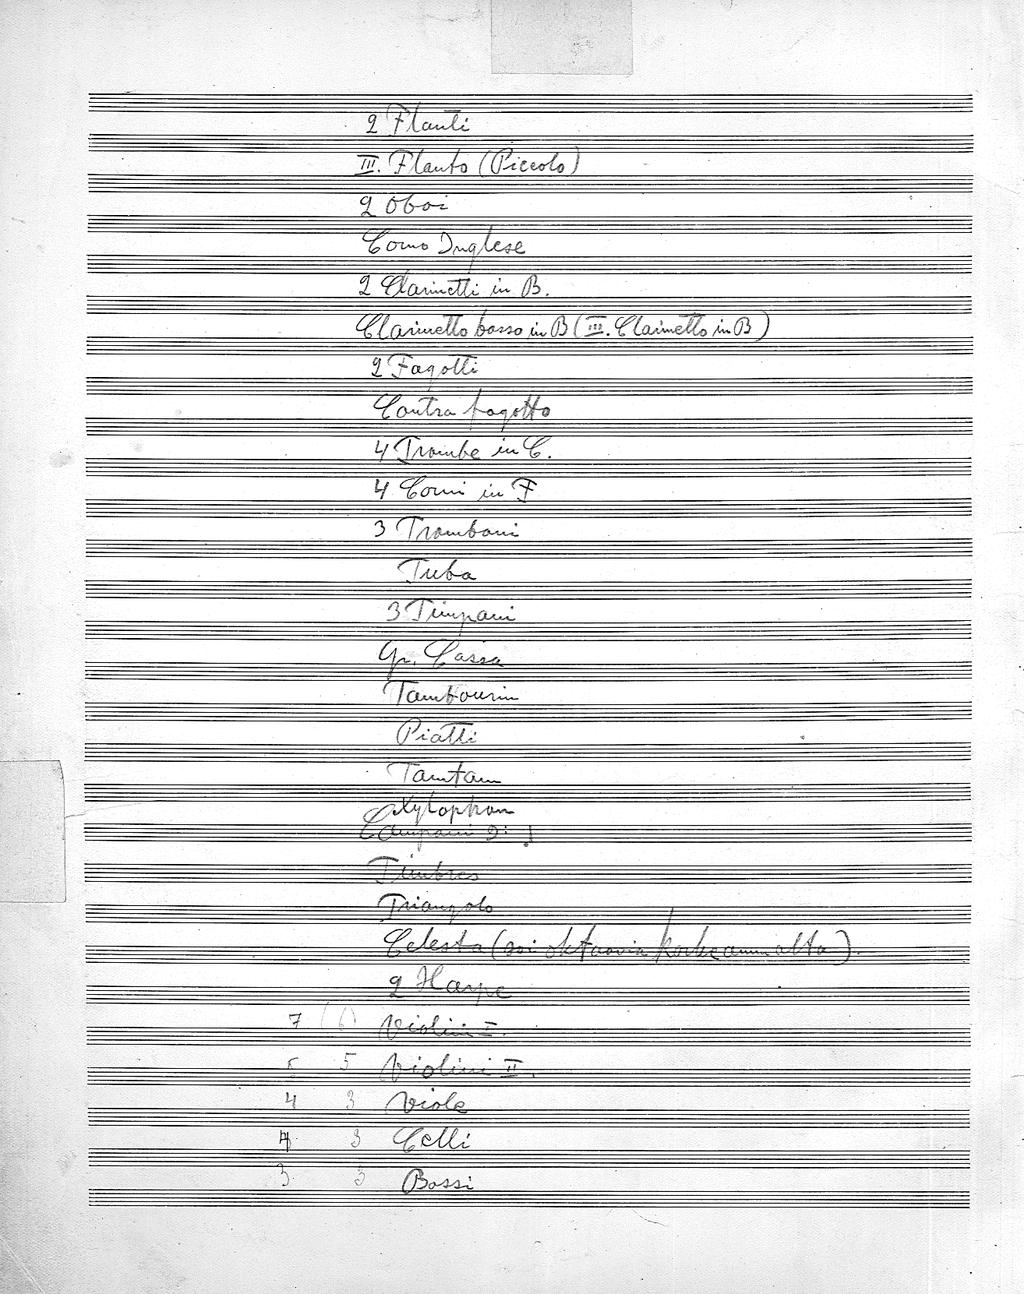 2 Flauti
III. Flauto (Piccolo)
2 Oboi
Corno Inglese
2 Clarinetti in B.
Clarinetto basso in B (III. Clarinetto in B)
2 Fagotti
Contrafagotto
4 Trombe in C.
4 Corni in F
3 Tromboni
Tuba
3 Timpani
Gr. Cassa
Tambourin
Piatti
Tamtam
Xylophon
Campani
Timbres
Triangolo
Celesta (soi oktaavia korkeammalta).
2 Harpe
7 (6) Violini I.
5 5 Violini II.
4 3 Viole
4 3 Celli
3 3 Bassi